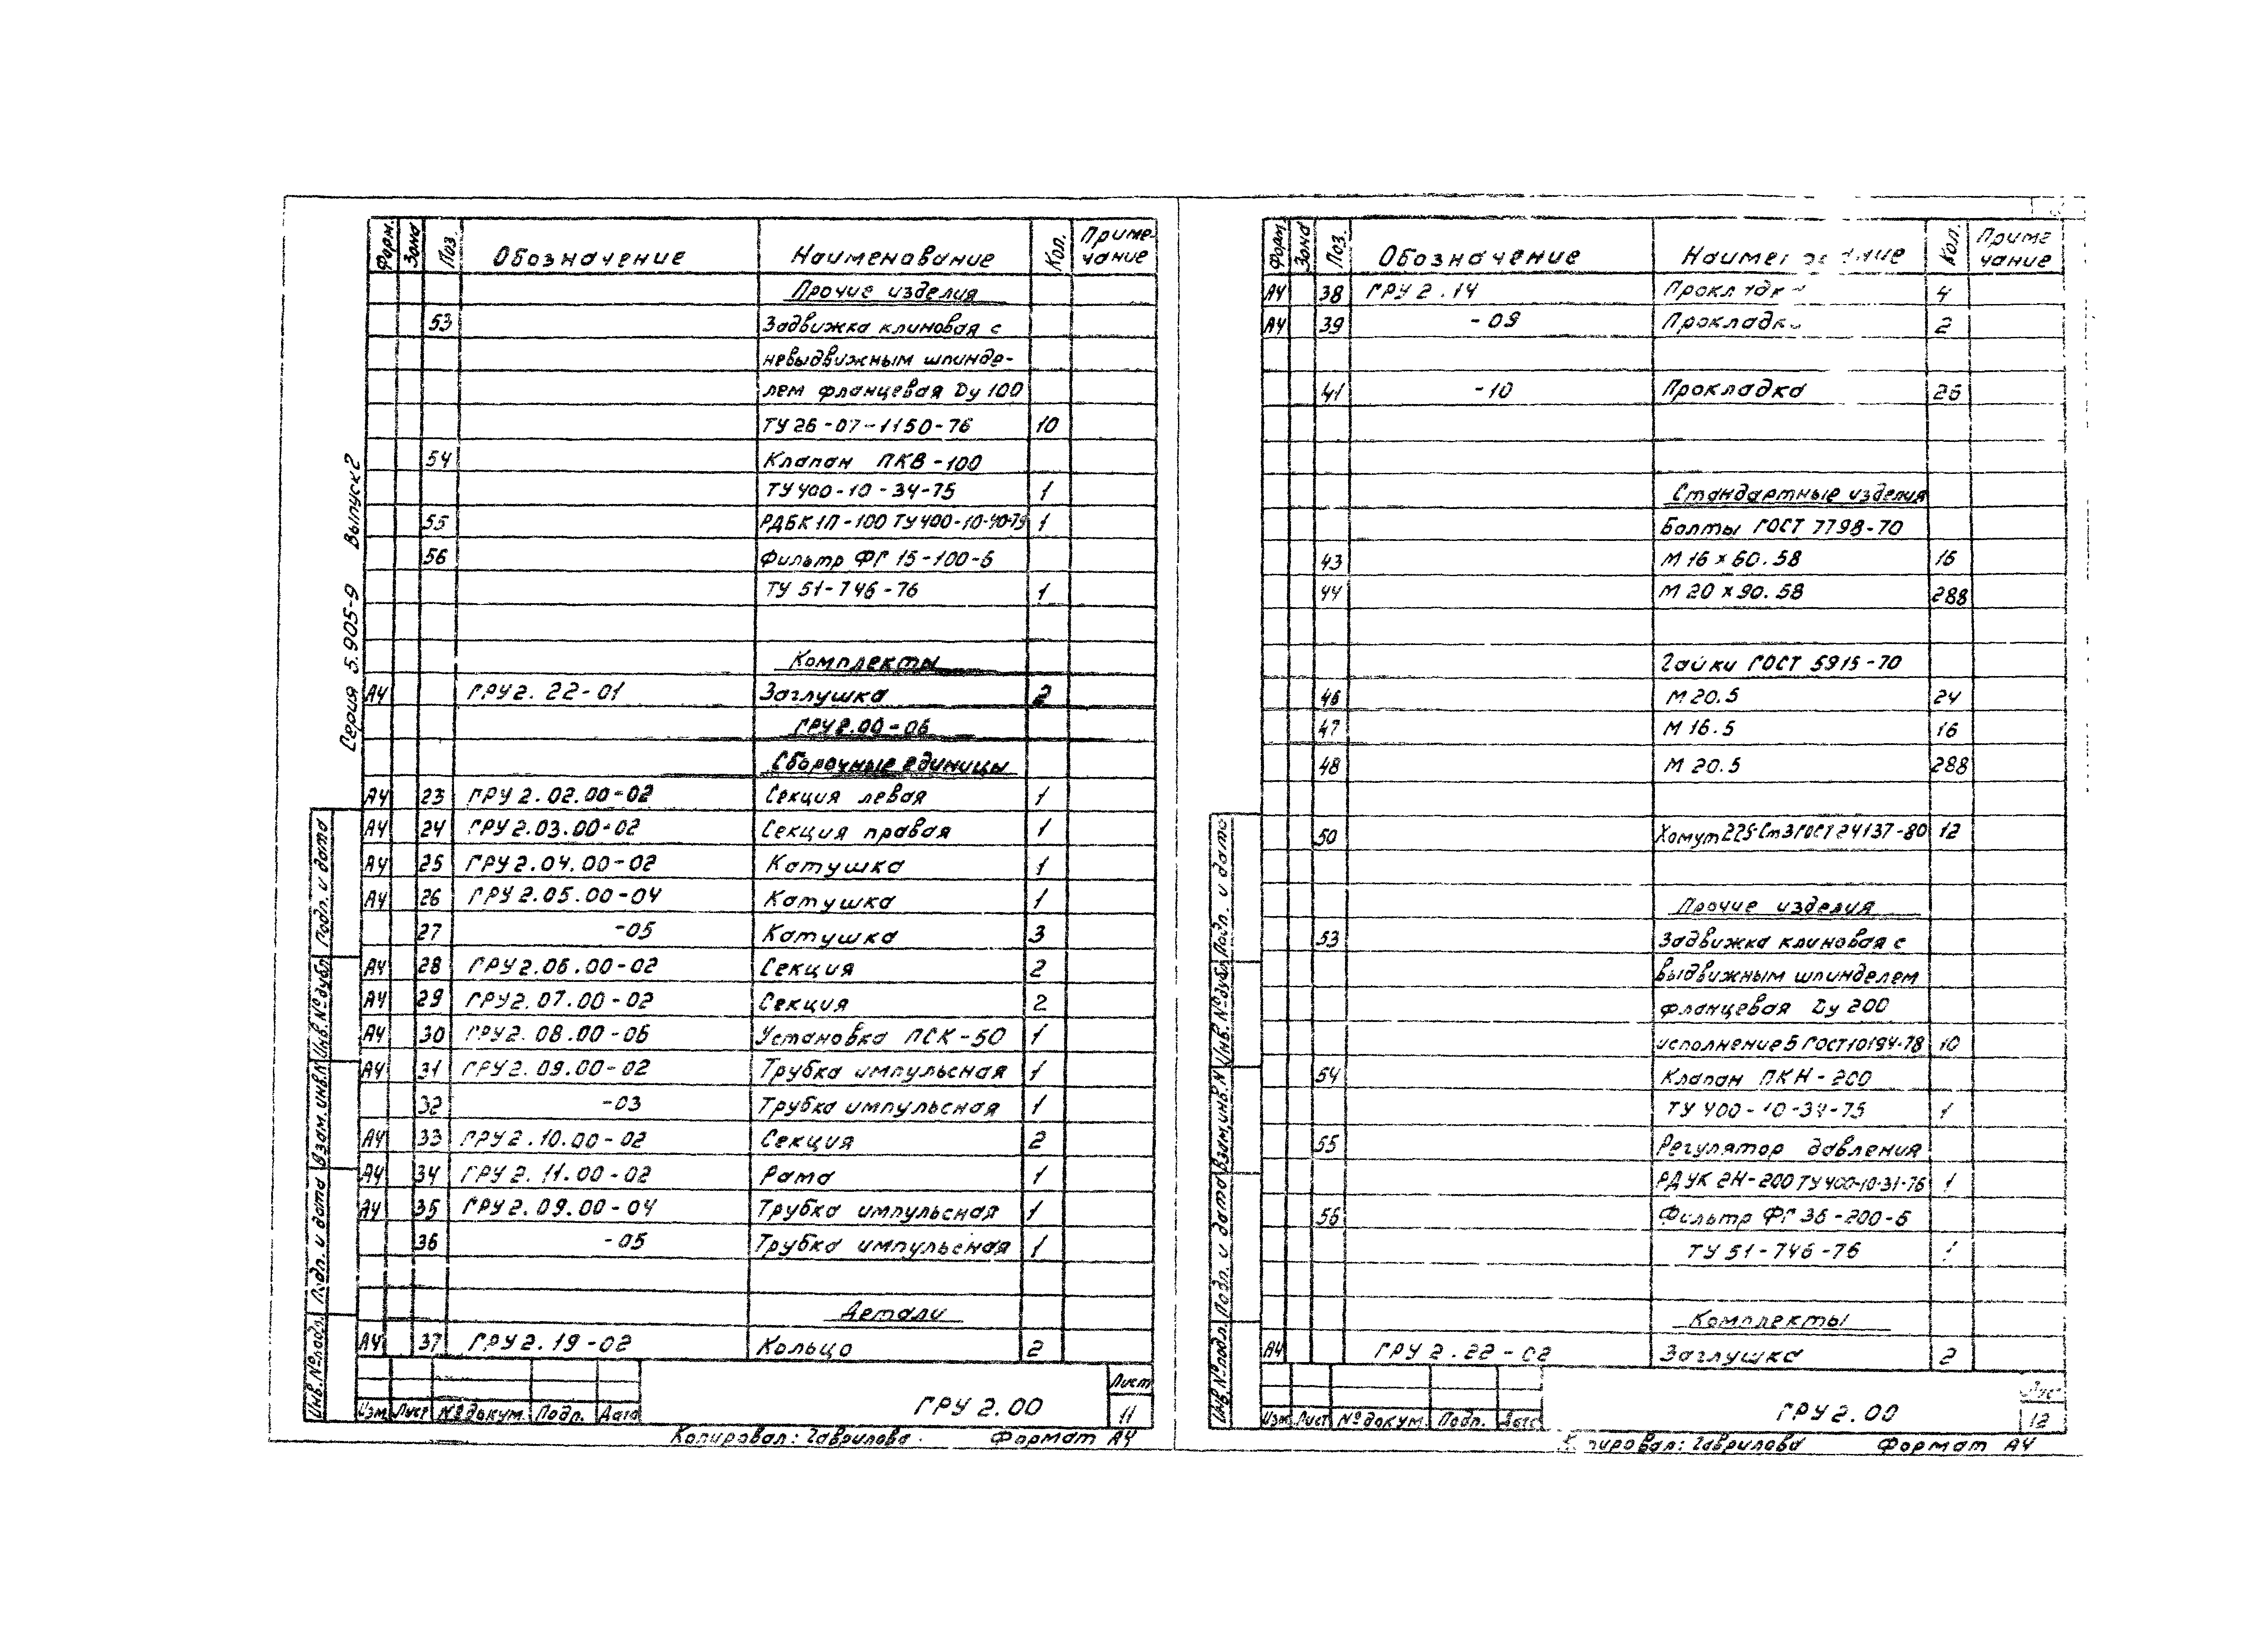 Серия 5.905-9 Выпуск 2
Форм. Зона Поз. Обозначение Наименование Кол. Примечание
Прочие изделия
53 Задвижка клиновая с
невыдвижным шпинде-
лем фланцевая Dу 100
ТУ 26-07-1150-76 10
54 Клапан ПКВ-100
ТУ 400-10-34-75 1
55 РДБК 1П-100 ТУ 400-10-40-79 1
56 Фильтр ФГ 15-100-6
ТУ 51-746-76 1
Комплекты
А4 ГРУ 2. 22-01 Заглушка 2
ГРУ 2.00-06
Сборочные единицы
А4 23 ГРУ 2.02.00-02 Секция левая 1
А4 24 ГРУ 2.03.00-02 Секция правая 1
А4 25 ГРУ 2.04.00-02 Катушка 1
А4 26 ГРУ 2.05.00-04 Катушка 1
27 -05 Катушка 3
А4 28 ГРУ 2.06.00-02 Секция 2
А4 29 ГРУ 2.07.00-02 Секция 2
А4 30 ГРУ 2.08.00-06 Установка ПСК-50 1
А4 31 ГРУ 2.09.00-02 Трубка импульсная 1
32 -03 Трубка импульсная 1
А4 33 ГРУ 2.10.00-02 Секция 2
А4 34 ГРУ 2.11.00-02 Рама 1
А4 35 ГРУ 2.09.00-04 Трубка импульсная 1
36 -05 Трубка импульсная 1
Детали
А4 37 ГРУ 2.19-02 Кольцо 2
Инв.№подл. Подп. и дата Взам.инв.№ Инв.№дубл. Подп. и дата
Изм Лист №докум. Подп. Дата
ГРУ 2.00
Лист
11
Копировал: Гаврилова Формат А4
Форм. Зона Поз. Обозначение Наименование Кол. Примечание
А4 38 ГРУ 2.14 Прокладка 4
А4 39 -09 Прокладка 2
41 -10 Прокладка 26
Стандартные изделия
Болты ГОСТ 7798-70
43 М 16 х 60.58 16
44 М 20 х 90.58 288
Гайки ГОСТ 5915-70
46 М 20.5 24
47 М 16.5 16
48 М 20.5 288
50 Хомут 225-Ст3 ГОСТ 24137-80 12
Прочие изделия
53 Задвижка клиновая с
выдвижным шпинделем
фланцевая Dу 200
исполнение Б ГОСТ 10194-78 10
54 Клапан ПКН-200
ТУ 400-10-34-75 1
55 Регулятор давления
РДУК 2Н-200 ТУ 400-10-31-76 1
56 Фильтр ФГ 36-200-6
ТУ 51-746-76 1
Комплекты
А4 ГРУ 2.22-02 Заглушка 2
Инв.№подл. Подп. и дата Взам.инв.№ Инв.№дубл. Подп. и дата
Изм Лист №докум. Подп. Дата
ГРУ 2.00
Лист
12
Копировал: Гаврилова Формат А4